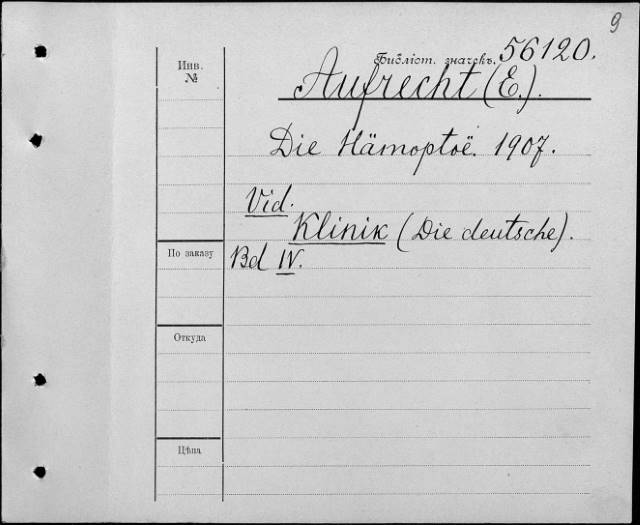 9
Инв. №
Библіот. значекъ. 56120.
Aufrecht (E.).
Die Hämoptoë. 1907.
Vid.
Klinik (Die deutsche).
По заказу
Bd IV.
Откуда
Цѣна